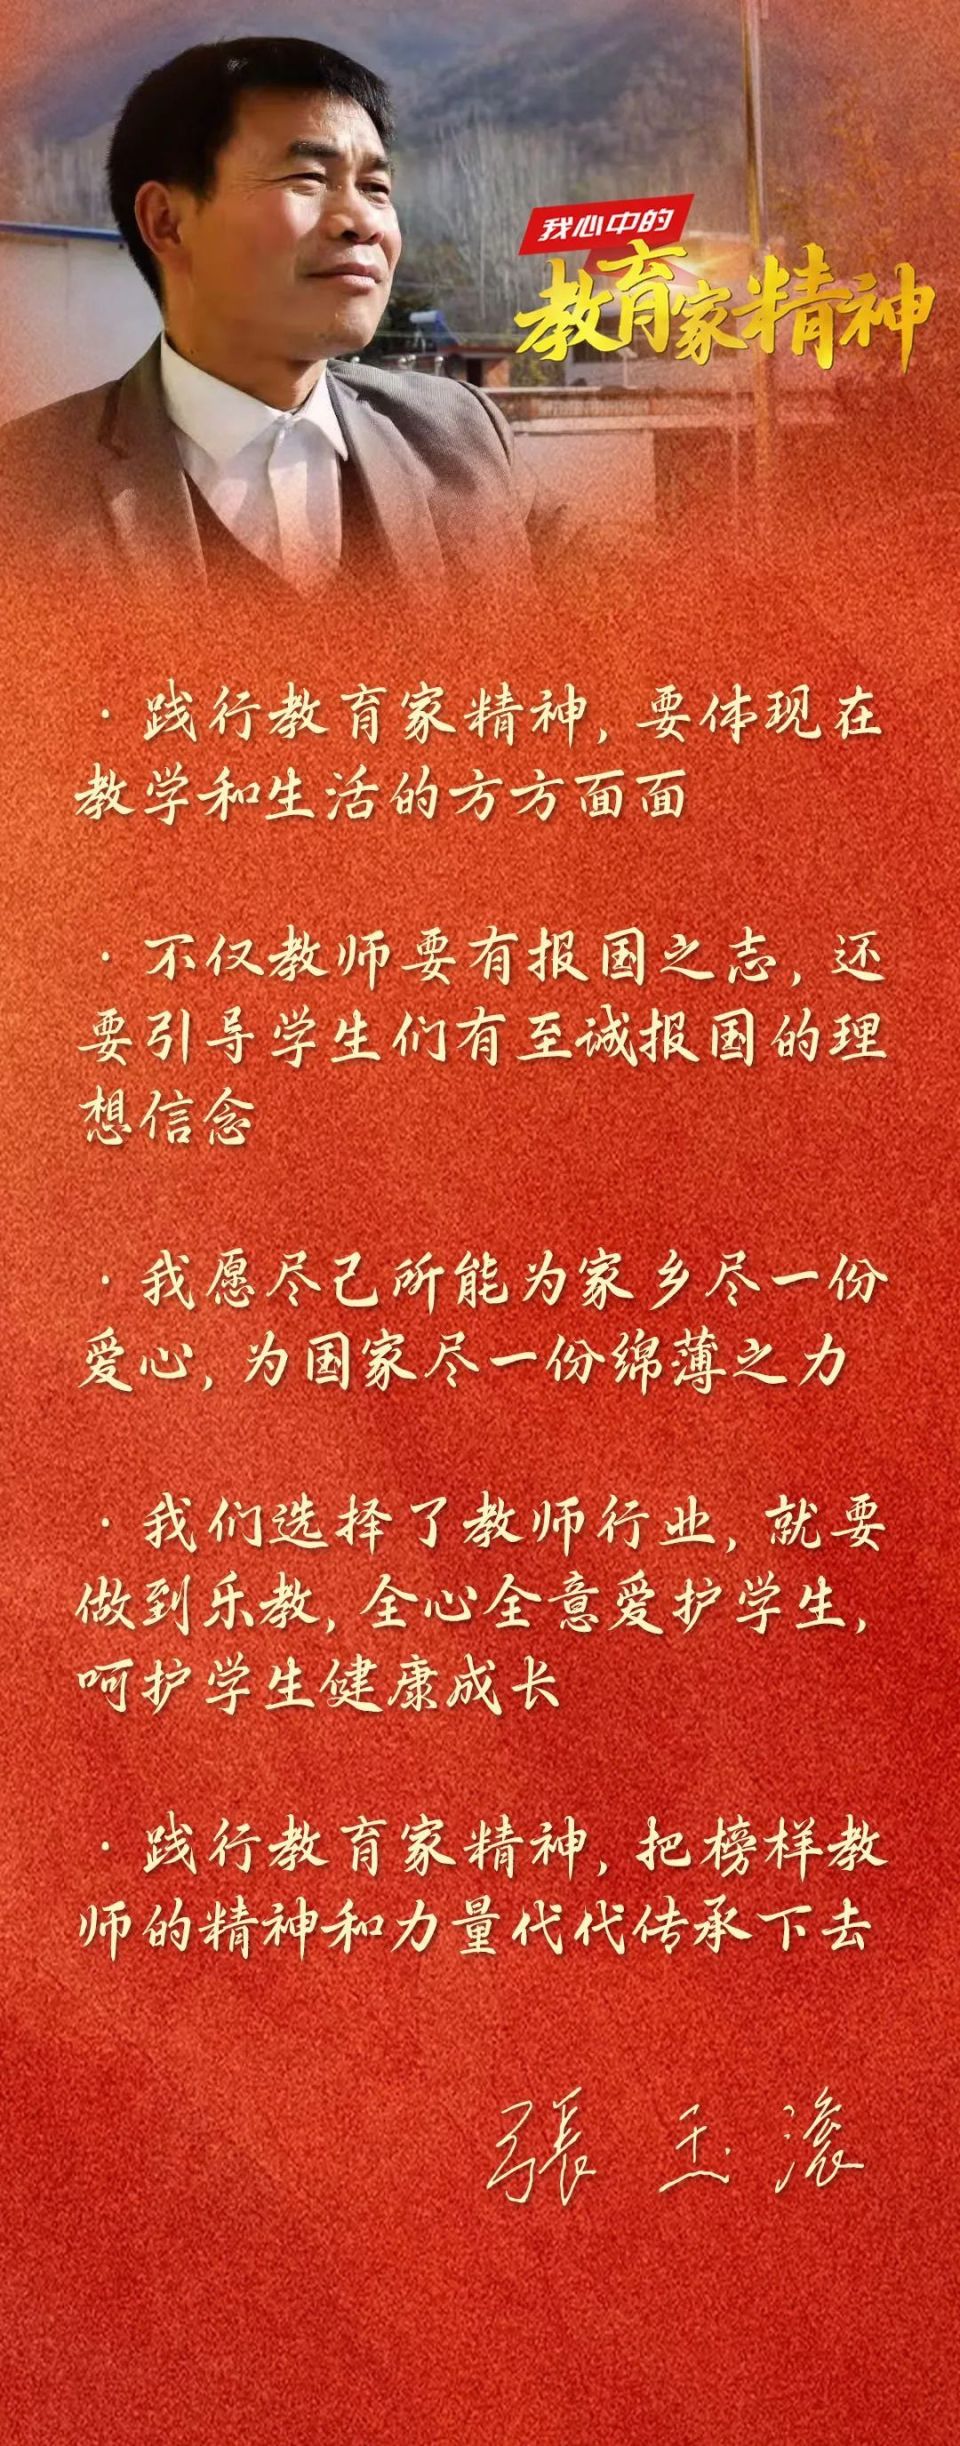 我心中的
教育家精神
· 践行教育家精神，要体现在
教学和生活的方方面面
· 不仅教师要有报国之志，还
要引导学生们有至诚报国的理
想信念
· 我愿尽己所能为家乡尽一份
爱心，为国家尽一份绵薄之力
· 我们选择了教师行业，就要
做到乐教，全心全意爱护学生，
呵护学生健康成长
· 践行教育家精神，把榜样教
师的精神和力量代代传承下去
張玉滚